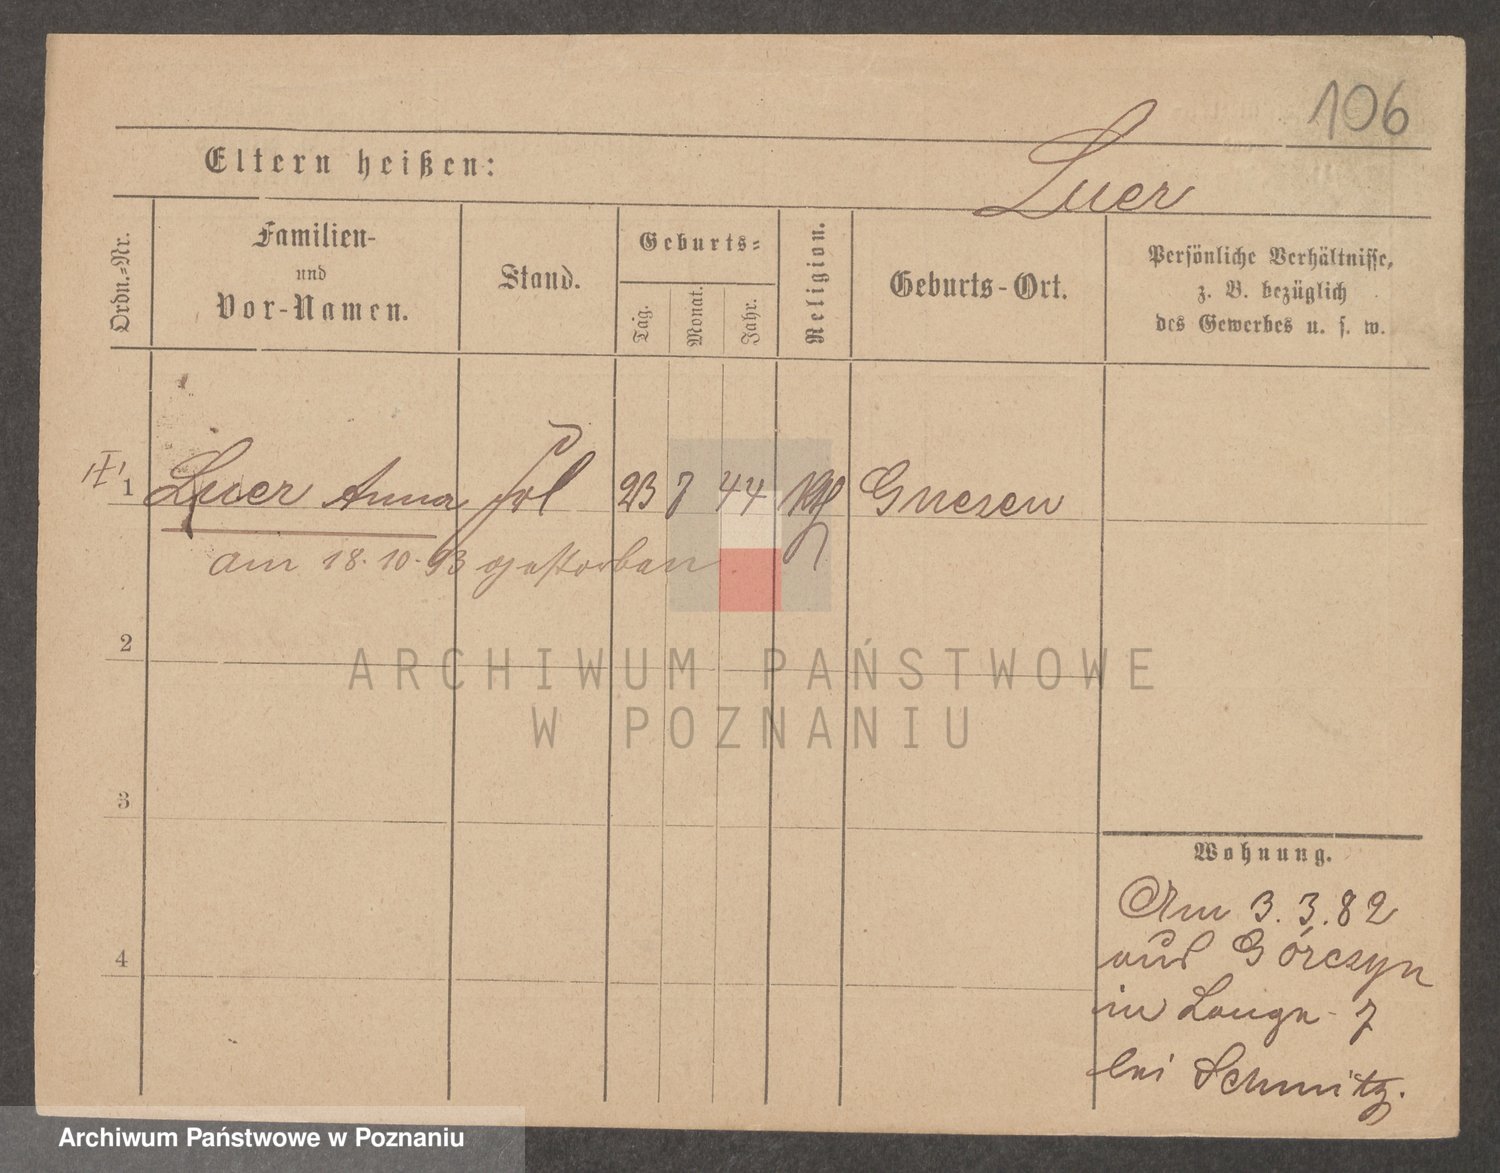 106
Eltern heißen:
Luer
Ordn.-Nr.
Familien-
und
Vor-Namen.
Stand.
Geburts-
Tag.
Monat.
Jahr.
Religion.
Geburts-Ort.
Persönliche Verhältnisse,
z. B. bezüglich
des Gewerbes u. s. w.
1 Luer Anna 23 7 44 Gnesen
am 18.10.93 gestorben
2
ARCHIWUM PAŃSTWOWE
W POZNANIU
3
Wohnung.
Am 3.3.82
aus Górczyn
in Lange- 7
bei Schmitz.
4
Archiwum Państwowe w Poznaniu